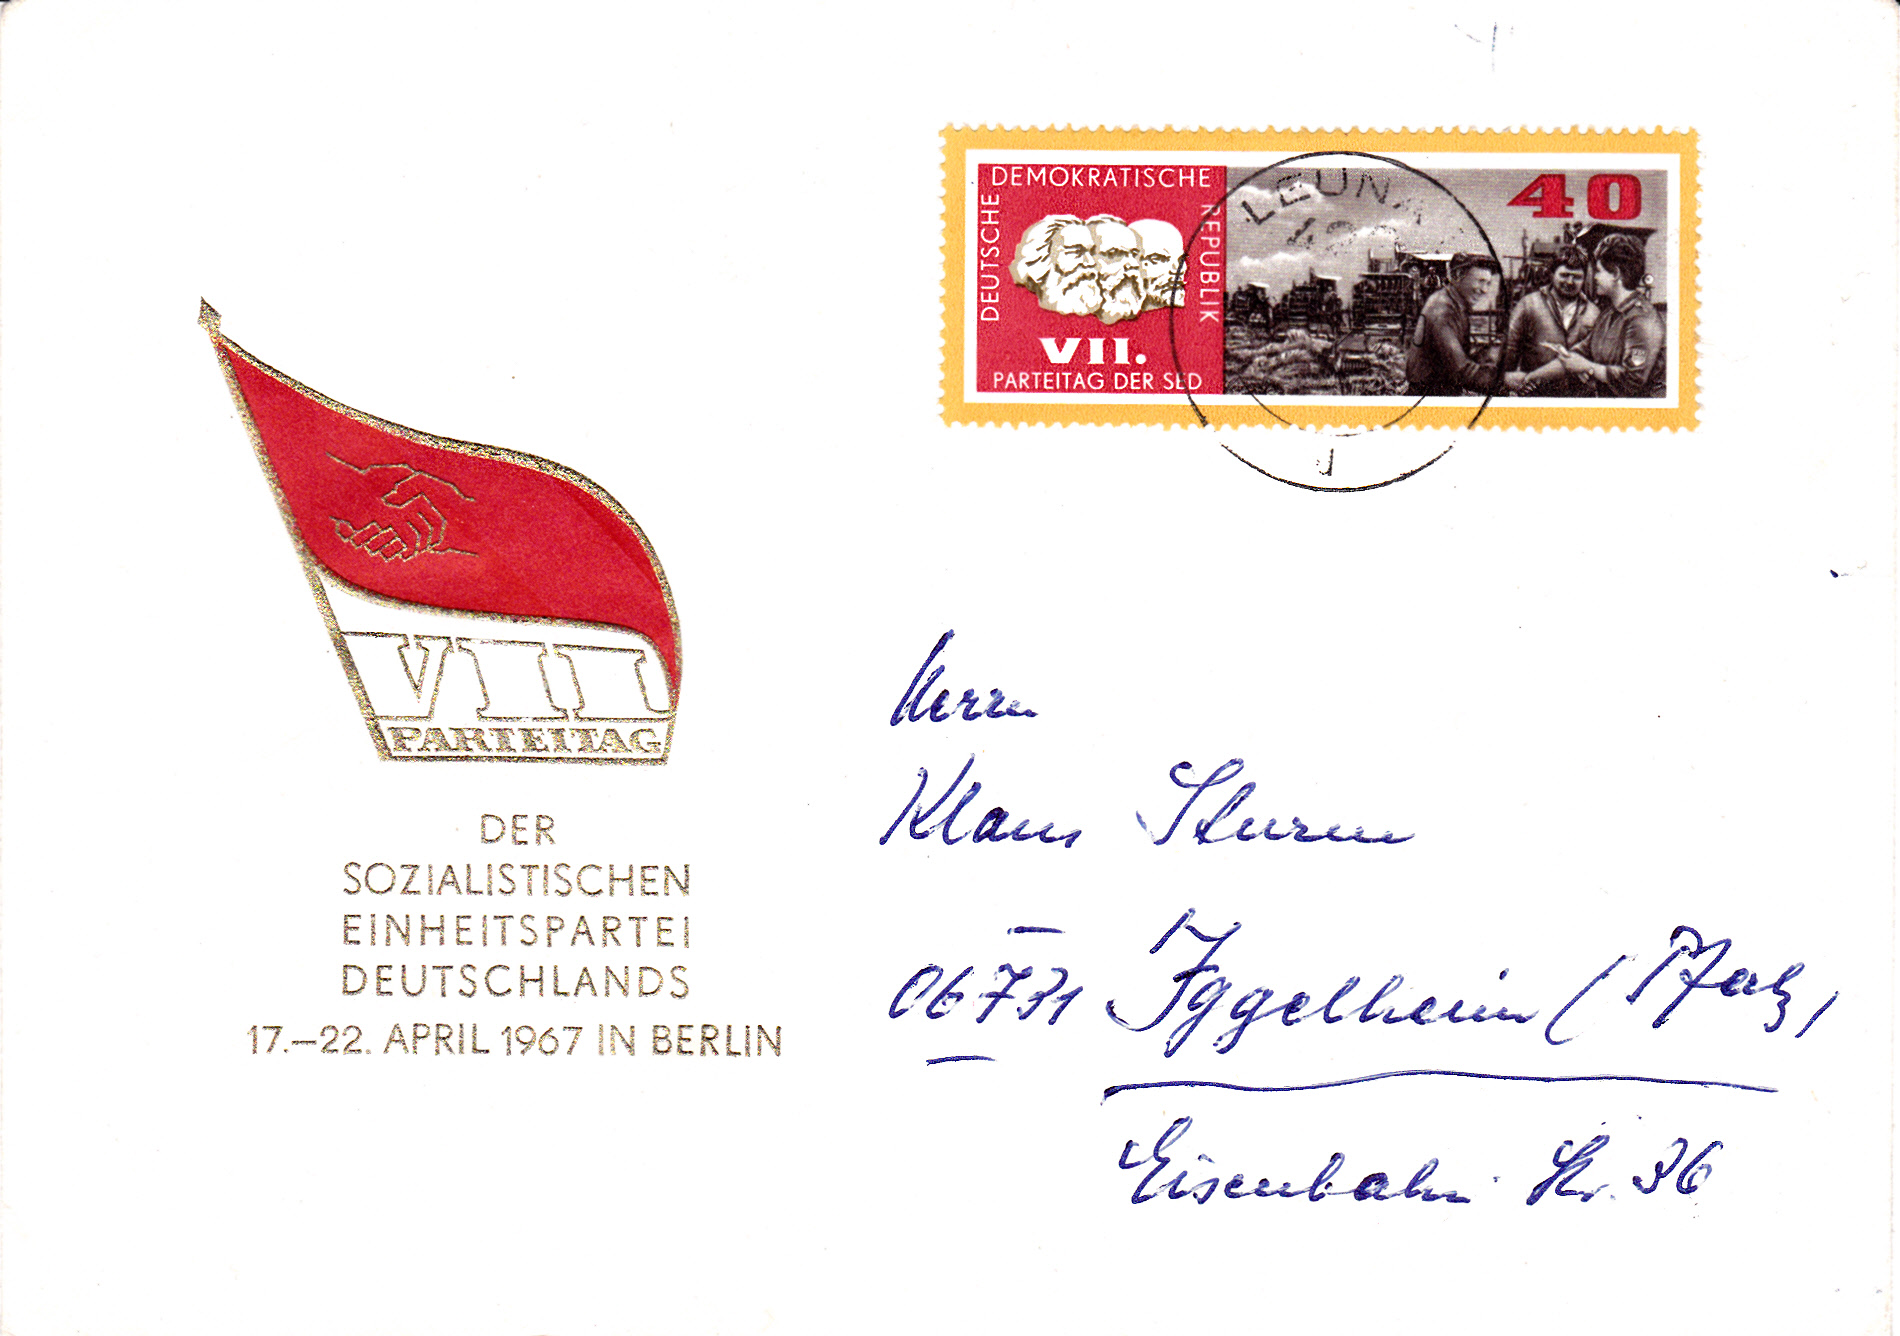 DEUTSCHE
DEMOKRATISCHE
REPUBLIK
VII.
PARTEITAG DER SED
40
LEUNA
VII
PARTEITAG
DER
SOZIALISTISCHEN
EINHEITSPARTEI
DEUTSCHLANDS
17.–22. APRIL 1967 IN BERLIN
Herrn
Klaus Sturm
06731 Iggelheim (Pfalz)
Eisenbahn Str. 36